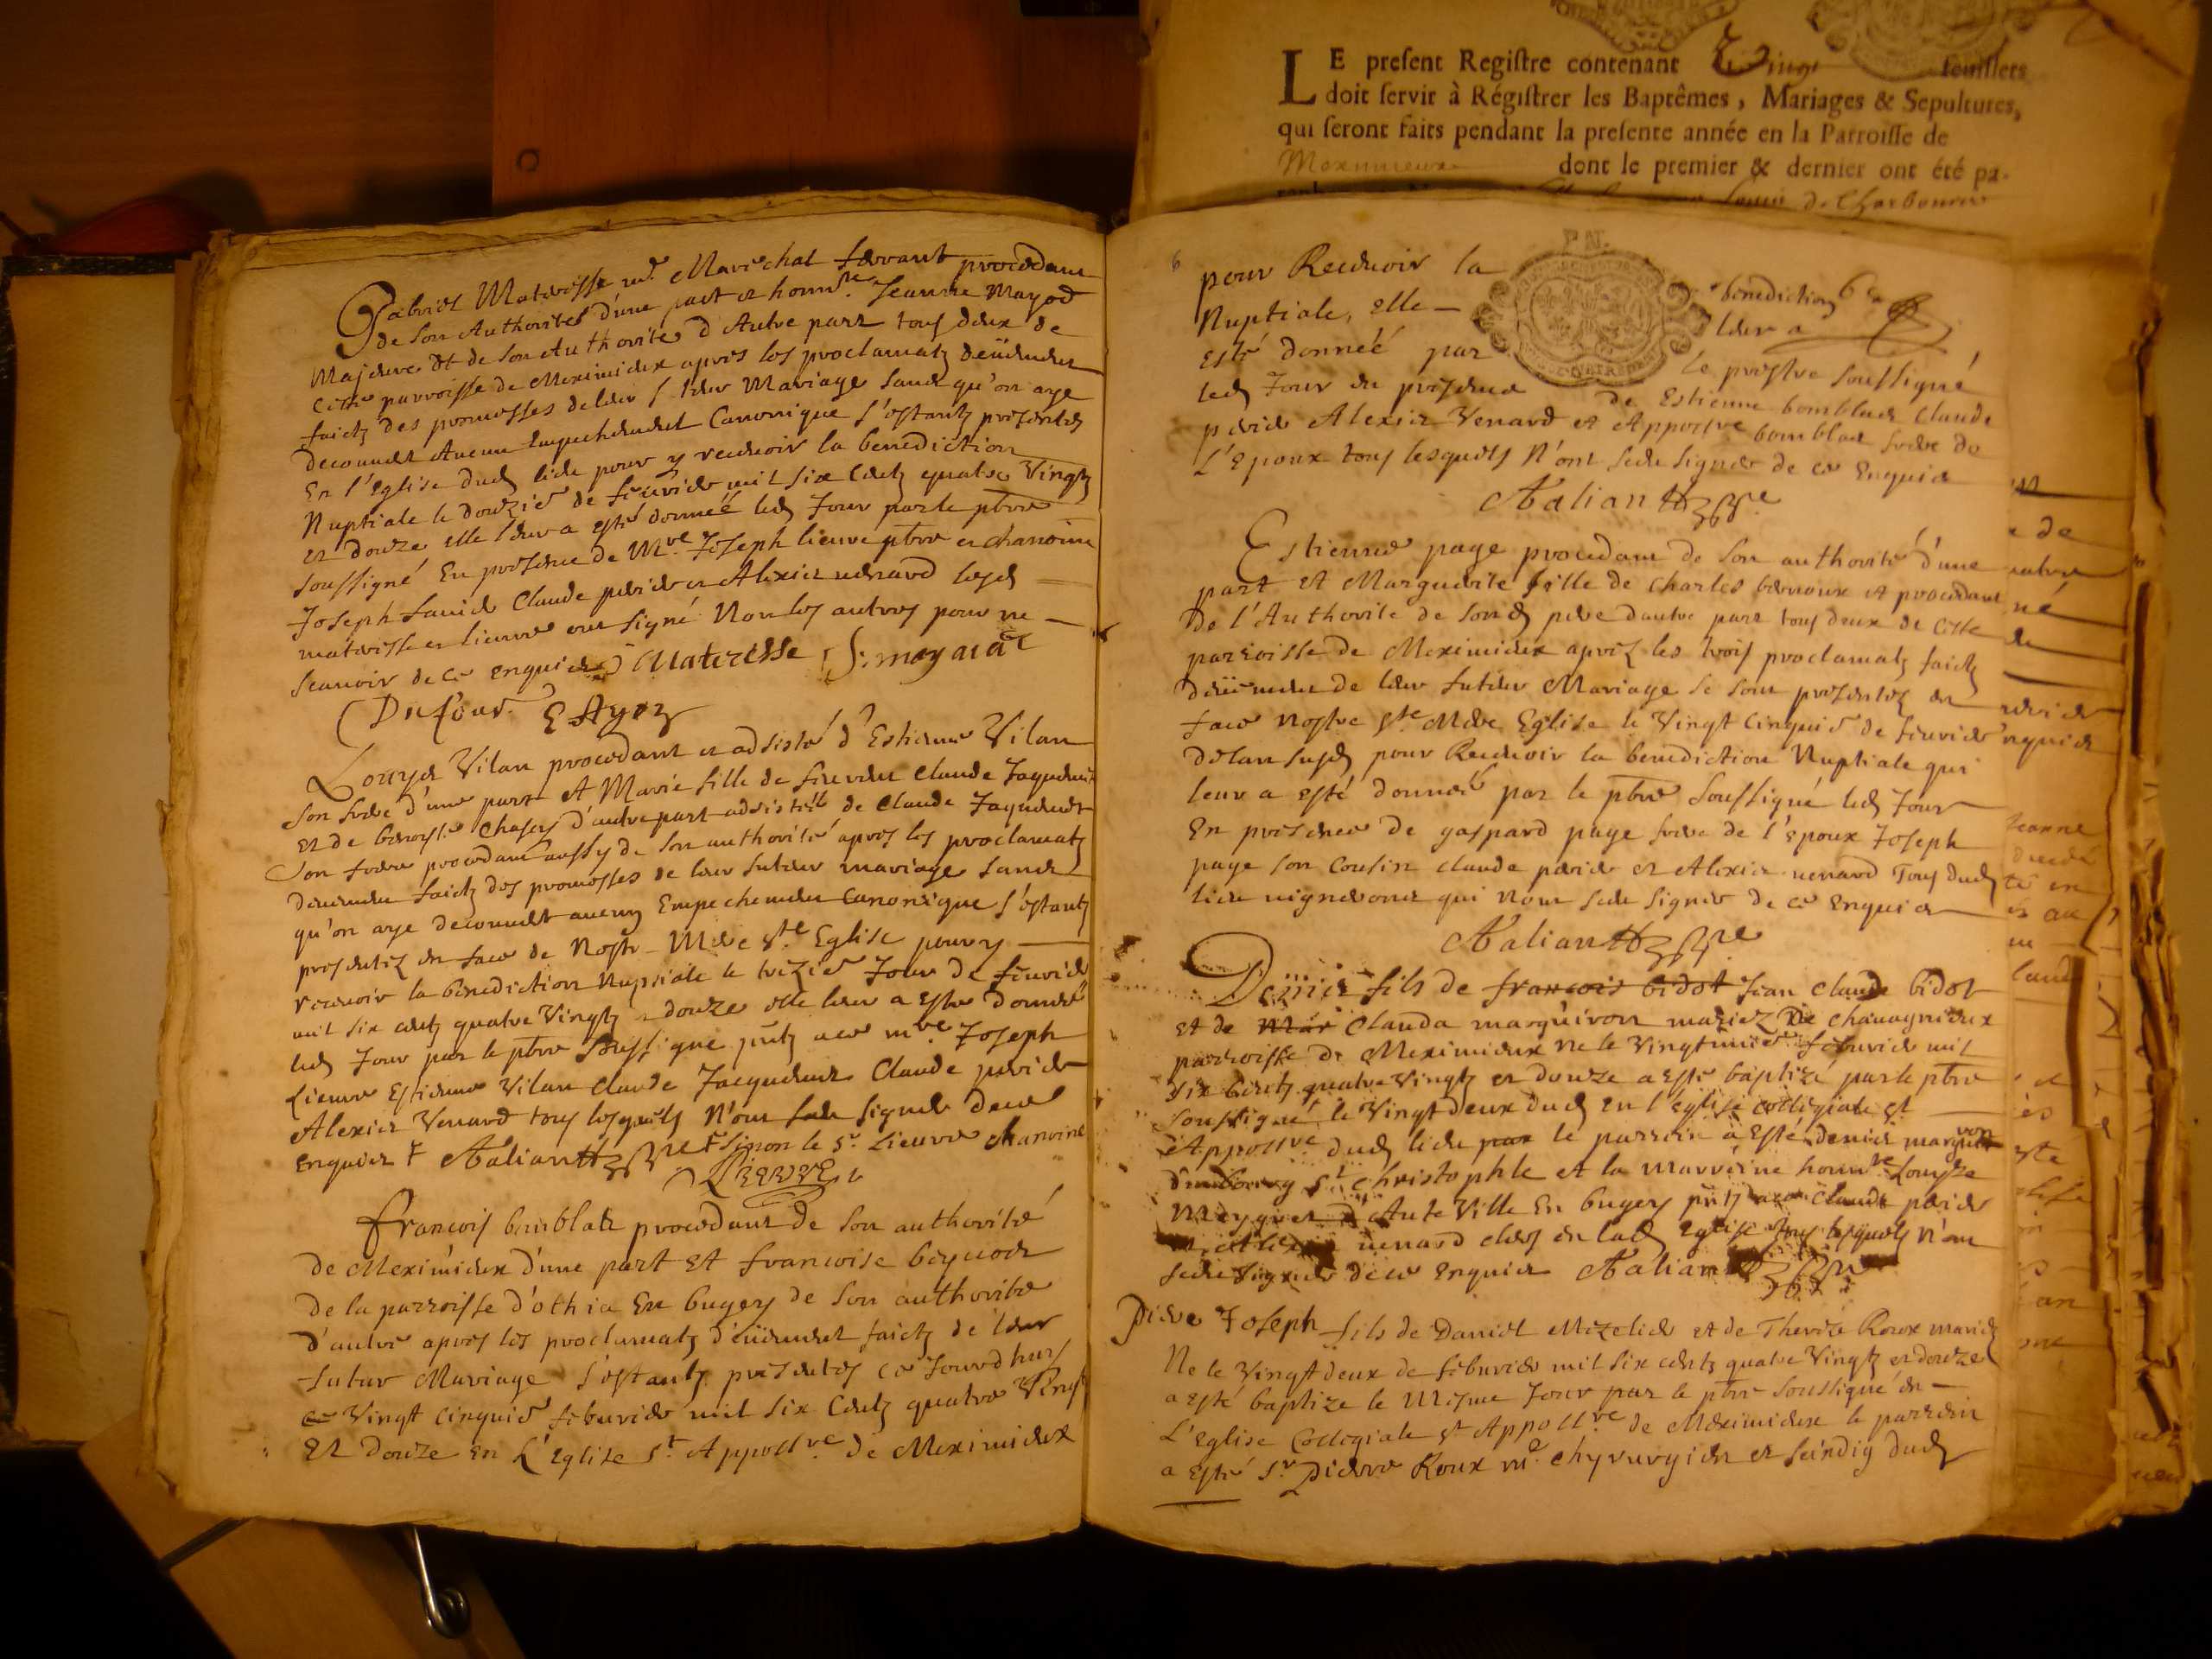 Gabriel Materesse m.d Marechal ferrant procedant
de son Authorité d'une part et honn.te Jeanne Mayod
Majeure et de son Authorité d'Autre part tous deux de
cette parroisse de Meximieux apres les proclamatz deüement
faictz des promesses de leur f leur Mariage sans qu'on aye
decouuert Aucun Empechement Canonique s'estantz presentés
En l'Eglise dud lieu pour y receuoir la benediction
Nuptiale le douzie de feurier mil six centz quatre Vingtz
et douze elle leur a esté donnée led Jour par le pbre
soussigné En presence de M.re Joseph lieure pbre et chanoine
Joseph Claude perier et Alexis uenard lesd
materesse et lieure ont signé Non les autres pour ne
scauoir de ce enquis Materesse
Dufour
Louys Vilan procedant et adsisté d'Estienne Vilan
son frere d'une part Et Marie fille de feu Claude Jaquemet
et de benoiste Chasey d'autre part adsistée de Claude Jaquemet
son frere procedant aussy de son authorité apres les proclamatz
deuement faictz des promesses de leur futeur mariage sans
qu'on aye decouuert aucun Empechement canonique s'estantz
presentez en face de Nostre Mere s.te Eglise pour y
receuoir la benediction Nuptiale le treizie Jour de feurier
mil six centz quatre Vingtz et douze elle leur a esté donné
led Jour par le pbre soussigné m.re Joseph
Lieure Estienne Vilan Claude Jacquemet Claude perier
Alexis Venard tous lesquels n'ont sceu signer de ce
enquis Ŧ Ŧ sinon le s.r Lieure chanoine
Lieure
francois bomblat procedant de son authorité
de Meximieux d'une part Et francoise
de la parroisse d'othia En bugey de son authorité
d'autre apres les proclamatz d'eüement faictz de leur
futur Mariage s'estantz presentés ce Jourd huy
ce Vingt cinquie feburier mil six centz quatre Vingt
Et douze en L'Eglise s.t Appoll.re de Meximieux
LE present Registre contenant Vingt feuillets
doit servir à Régistrer les Baptêmes, Mariages & Sepultures,
qui seront faits pendant la presente année en la Parroisse de
Meximieux dont le premier & dernier ont été pa-
de Charbonnier
6 pour Receuoir la benediction 6e
Nuptiale, elle leur a
esté donneé par le prestre soussigné
led Jour en presence de Estienne bomblat Claude
perier Alexis Venard et Appoll.re bomblat frere de
L'Epoux tous lesquels N'ont sceu signer de ce Enquis
Estienne page procedant de son authorité d'une
part et Marguerite fille de Charles et procedant
de l'Authorité de sond pere d'autre part tous deux de cette
parroisse de Meximieux aprez les trois proclamatz faictz
deüement de leur futeur Mariage se sont presentez en
face Nostre s.te Mere Eglise le Vingt cinquie de feurier
de l'an susd pour Receuoir la benediction Nuptiale qui
leur a esté donneé par le pbre soussigné led Jour
En presence de gaspard page frere de l'Epoux Joseph
page son Cousin claude perier et Alexis uenard Tous dud
lieu uignerons qui n'ont sceu signer de ce Enquis
Denis fils de francois bidot Jean claude bidot
et de Mar Clauda marguiron mariez De chauagnieux
parroisse de Meximieux ne le Vingt feburier mil
six centz quatre Vingtz et douze a esté baptizé par le pbre
soussigné le Vingt deux dud En l'Eglise collegiale s.t
Appoll.re dud lieu par le parrein a esté denis marguiron
du bourg s.t christophle et la marreine honn.te Louyse
d'Aute Ville En bugey claude perier
et alexis uenard clers en lad Eglise tous lesquels n'ont
sceu signer de ce enquis
Piere Joseph fils de Daniel Mezelier et de Thereze Roux mariez
Ne le Vingt deux de feburier mil six centz quatre Vingtz et douze
a esté baptize le Mesme Jour par le pbre soussigné en
L'Eglise Collegiale s.t Appoll.re de Meximieux le parrein
a esté s.r Pierre Roux m.e chyrurgien et scindig dud